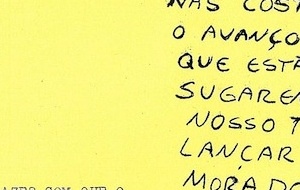 NAS COST
O AVANÇO
QUE ESTÃ
SUGAREM
NOSSO T
LANÇAR
MORADO
AZES COM QUE O